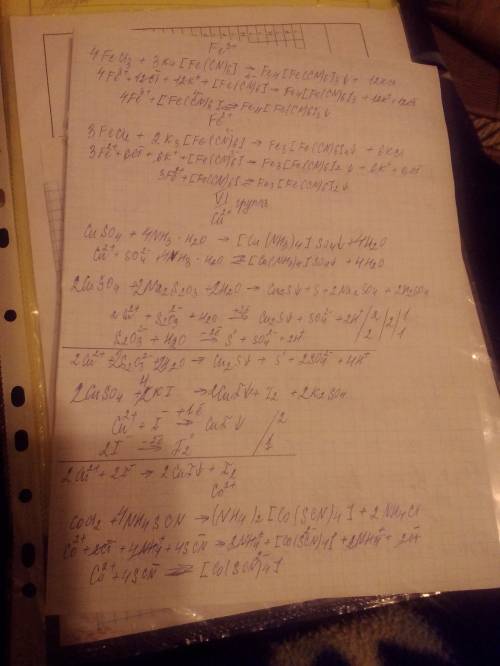 Fe³⁺
4FeCl₃ + 3K₄[Fe(CN)₆] → Fe₄[Fe(CN)₆]₃↓ + 12KCl
4Fe³⁺ + 12Cl⁻ + 12K⁺ + [Fe(CN)₆] → Fe₄[Fe(CN)₆]₃ + 12K⁺ + 12Cl⁻
4Fe³⁺ + [Fe(CN)₆] ⇄ Fe₄[Fe(CN)₆]₃↓
Fe²⁺
3FeCl₂ + 2K₃[Fe(CN)₆] → Fe₃[Fe(CN)₆]₂↓ + 6KCl
3Fe²⁺ + 6Cl⁻ + 6K⁺ + [Fe(CN)₆] → Fe₃[Fe(CN)₆]₂↓ + 6K⁺ + 6Cl⁻
3Fe²⁺ + [Fe(CN)₆] ⇄ Fe₃[Fe(CN)₆]₂↓
VI группа
Cu²⁺
CuSO₄ + 4NH₃·H₂O → [Cu(NH₃)₄]SO₄↓ + 4H₂O
Cu²⁺ + SO₄²⁻ + 4NH₃·H₂O ⇄ [Cu(NH₃)₄]SO₄↓ + 4H₂O
2CuSO₄ + 2Na₂S₂O₃ + 2H₂O → Cu₂S↓ + S + 2Na₂SO₄ + 2H₂SO₄
2Cu²⁺ + S₂O₃²⁻ + H₂O → Cu₂S↓ + SO₄²⁻ + 2H⁺ /2/2/1
S₂O₃²⁻ + H₂O –2ē→ S° + SO₄²⁻ + 2H⁺ 2 / 2 / 1
2Cu²⁺ + 2S₂O₃²⁻ + 2H₂O → Cu₂S↓ + S° + 2SO₄²⁻ + 4H⁺
2CuSO₄ + 4KI → 2CuI↓ + I₂ + 2K₂SO₄
Cu²⁺ + I⁻ +1ē→ CuI↓ /2
2I⁻ –2ē→ I₂° /1
2Cu²⁺ + 2I⁻ → 2CuI↓ + I₂
Co²⁺
CoCl₂ + 4NH₄SCN → (NH₄)₂[Co(SCN)₄] + 2NH₄Cl
Co²⁺ + 2Cl⁻ + 4NH₄⁺ + 4SCN⁻ → 2NH₄⁺ + [Co(SCN)₄]²⁻ + 2NH₄⁺ + 2Cl⁻
Co²⁺ + 4SCN⁻ ⇄ [Co(SCN)₄]²⁻